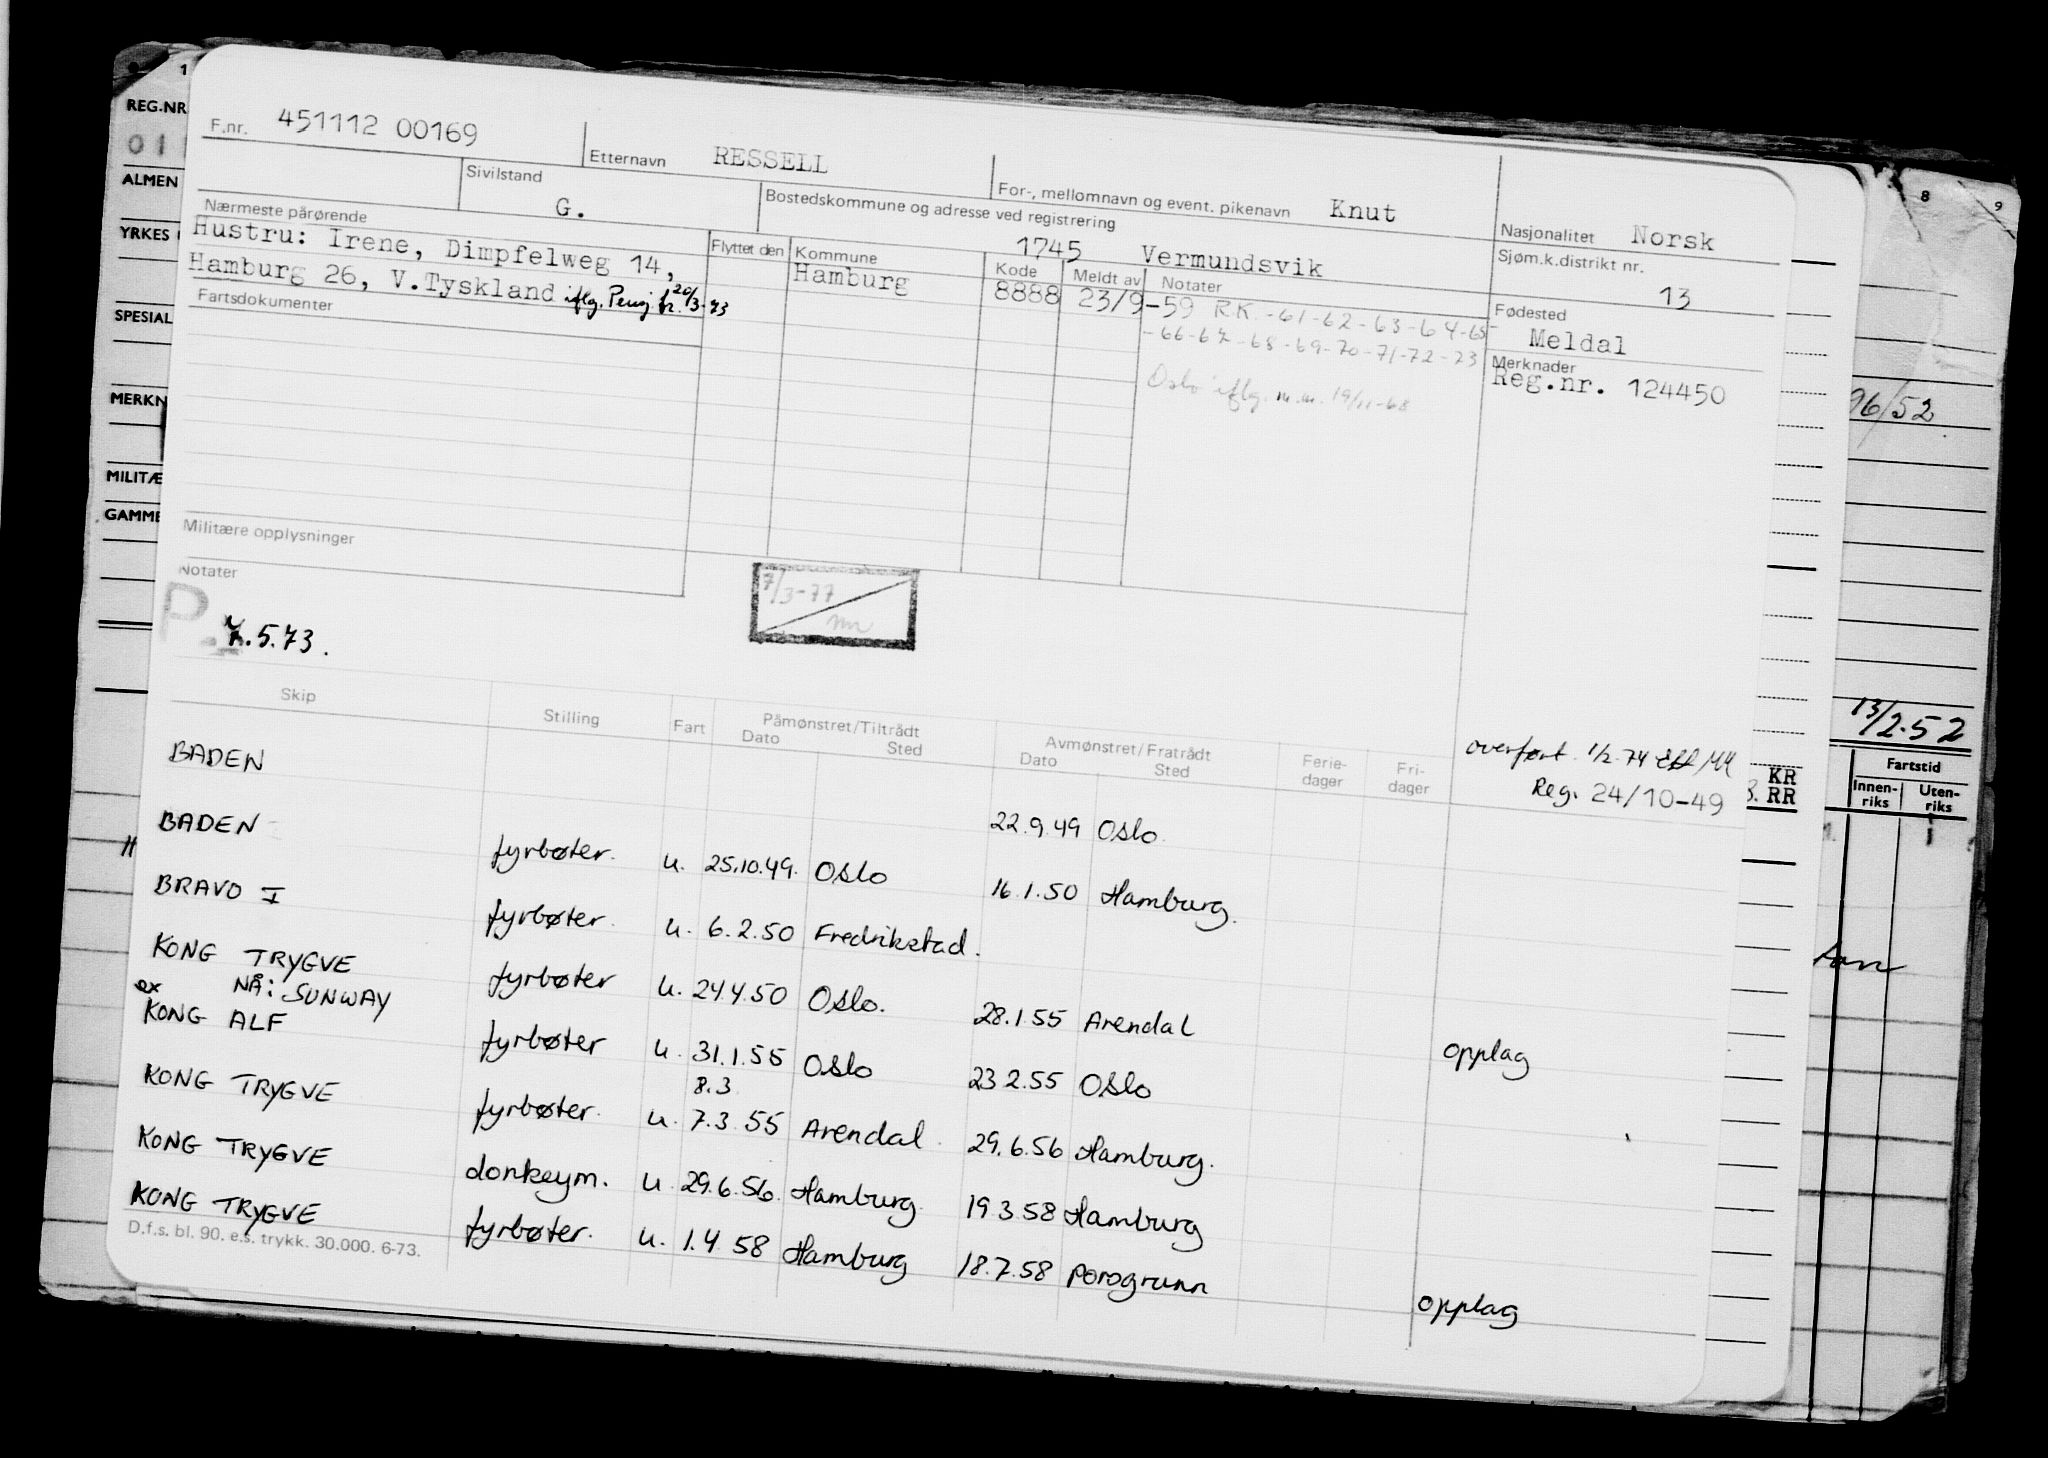 F.nr. 451112 00169
Etternavn RESSELL
For-, mellomnavn og event. pikenavn Knut
Nasjonalitet Norsk
Sivilstand G.
Bostedskommune og adresse ved registrering
1745 Vermundsvik
Sjøm.k.distrikt nr. 13
Nærmeste pårørende
Hustru: Irene, Dimpfelweg 14,
Hamburg 26, V.Tyskland iflg. Pensj. fr. 20/3-73
Flyttet den Kommune Kode Meldt av Notater
Hamburg 8888 23/9-59 R.K. -61-62-63-64-65-
-66-67-68-69-70-71-72-73
Oslo iflg. m.m. 19/11-68
Fødested
Meldal
Merknader
Reg.nr. 124450
Fartsdokumenter
Militære opplysninger
Notater
P. .5.73.
7/3-77
overført 1/2-74
Reg. 24/10-49
Skip Stilling Fart Påmønstret/Tiltrådt Avmønstret/Fratrådt Ferie- Fri-
Dato Sted Dato Sted dager dager
BADEN 22.9.49 Oslo.
BADEN fyrbøter. u. 25.10.49. Oslo 16.1.50 Hamburg.
BRAVO I fyrbøter. u. 6.2.50 Fredrikstad.
KONG TRYGVE fyrbøter u. 24.4.50 Oslo. 28.1.55 Arendal opplag
ex NÅ: SUNWAY
KONG ALF fyrbøter u. 31.1.55 Oslo 23 2.55 Oslo
8.3
KONG TRYGVE fyrbøter. u. 7.3.55 Arendal. 29.6.56 Hamburg.
KONG TRYGVE donkeym. u 29.6.56. Hamburg. 19 3.58 Hamburg
KONG TRYGVE fyrbøter. u. 1.4 58 Hamburg 18.7.58 Porsgrunn opplag
D.f.s. bl. 90. e.s. trykk. 30.000. 6-73.
1
REG.NR
01
ALMEN
YRKES
SPESIAL
MERKN
MILITÆ
GAMME
8 9
96/52
13/2.52
KR
RR
Fartstid
Innen-
riks
Uten-
riks